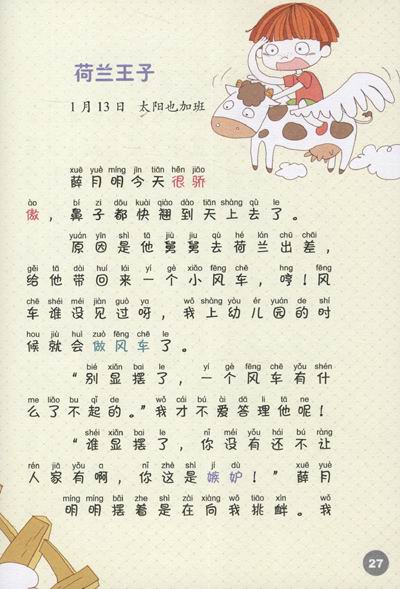 荷兰王子
1月13日 太阳也加班
xuē yuè míng jīn tiān hěn jiāo
薛月明今天很骄
ào bí zi dōu kuài qiào dào tiān shàng qù le
傲，鼻子都快翘到天上去了。
yuán yīn shì tā jiù jiu qù hé lán chū chāi
原因是他舅舅去荷兰出差，
gěi tā dài huí lái yí gè xiǎo fēng chē hng fēng
给他带回来一个小风车，哼！风
chē shéi méi jiàn guò ya wǒ shàng yòu ér yuán de shí
车谁没见过呀，我上幼儿园的时
hou jiù huì zuò fēng chē le
候就会做风车了。
bié xiǎn bai le yí gè fēng chē yǒu shén
“别显摆了，一个风车有什
me liǎo bu qǐ de wǒ cái bú ài dā li tā ne
么了不起的。”我才不爱答理他呢！
shéi xiǎn bai le nǐ méi yǒu hái bú ràng
“谁显摆了，你没有还不让
rén jiā yǒu a nǐ zhè shì jí dù xuē yuè
人家有啊，你这是嫉妒！”薛月
míng míng bǎi zhe shì zài xiàng wǒ tiǎo xìn wǒ
明明摆着是在向我挑衅。我
27